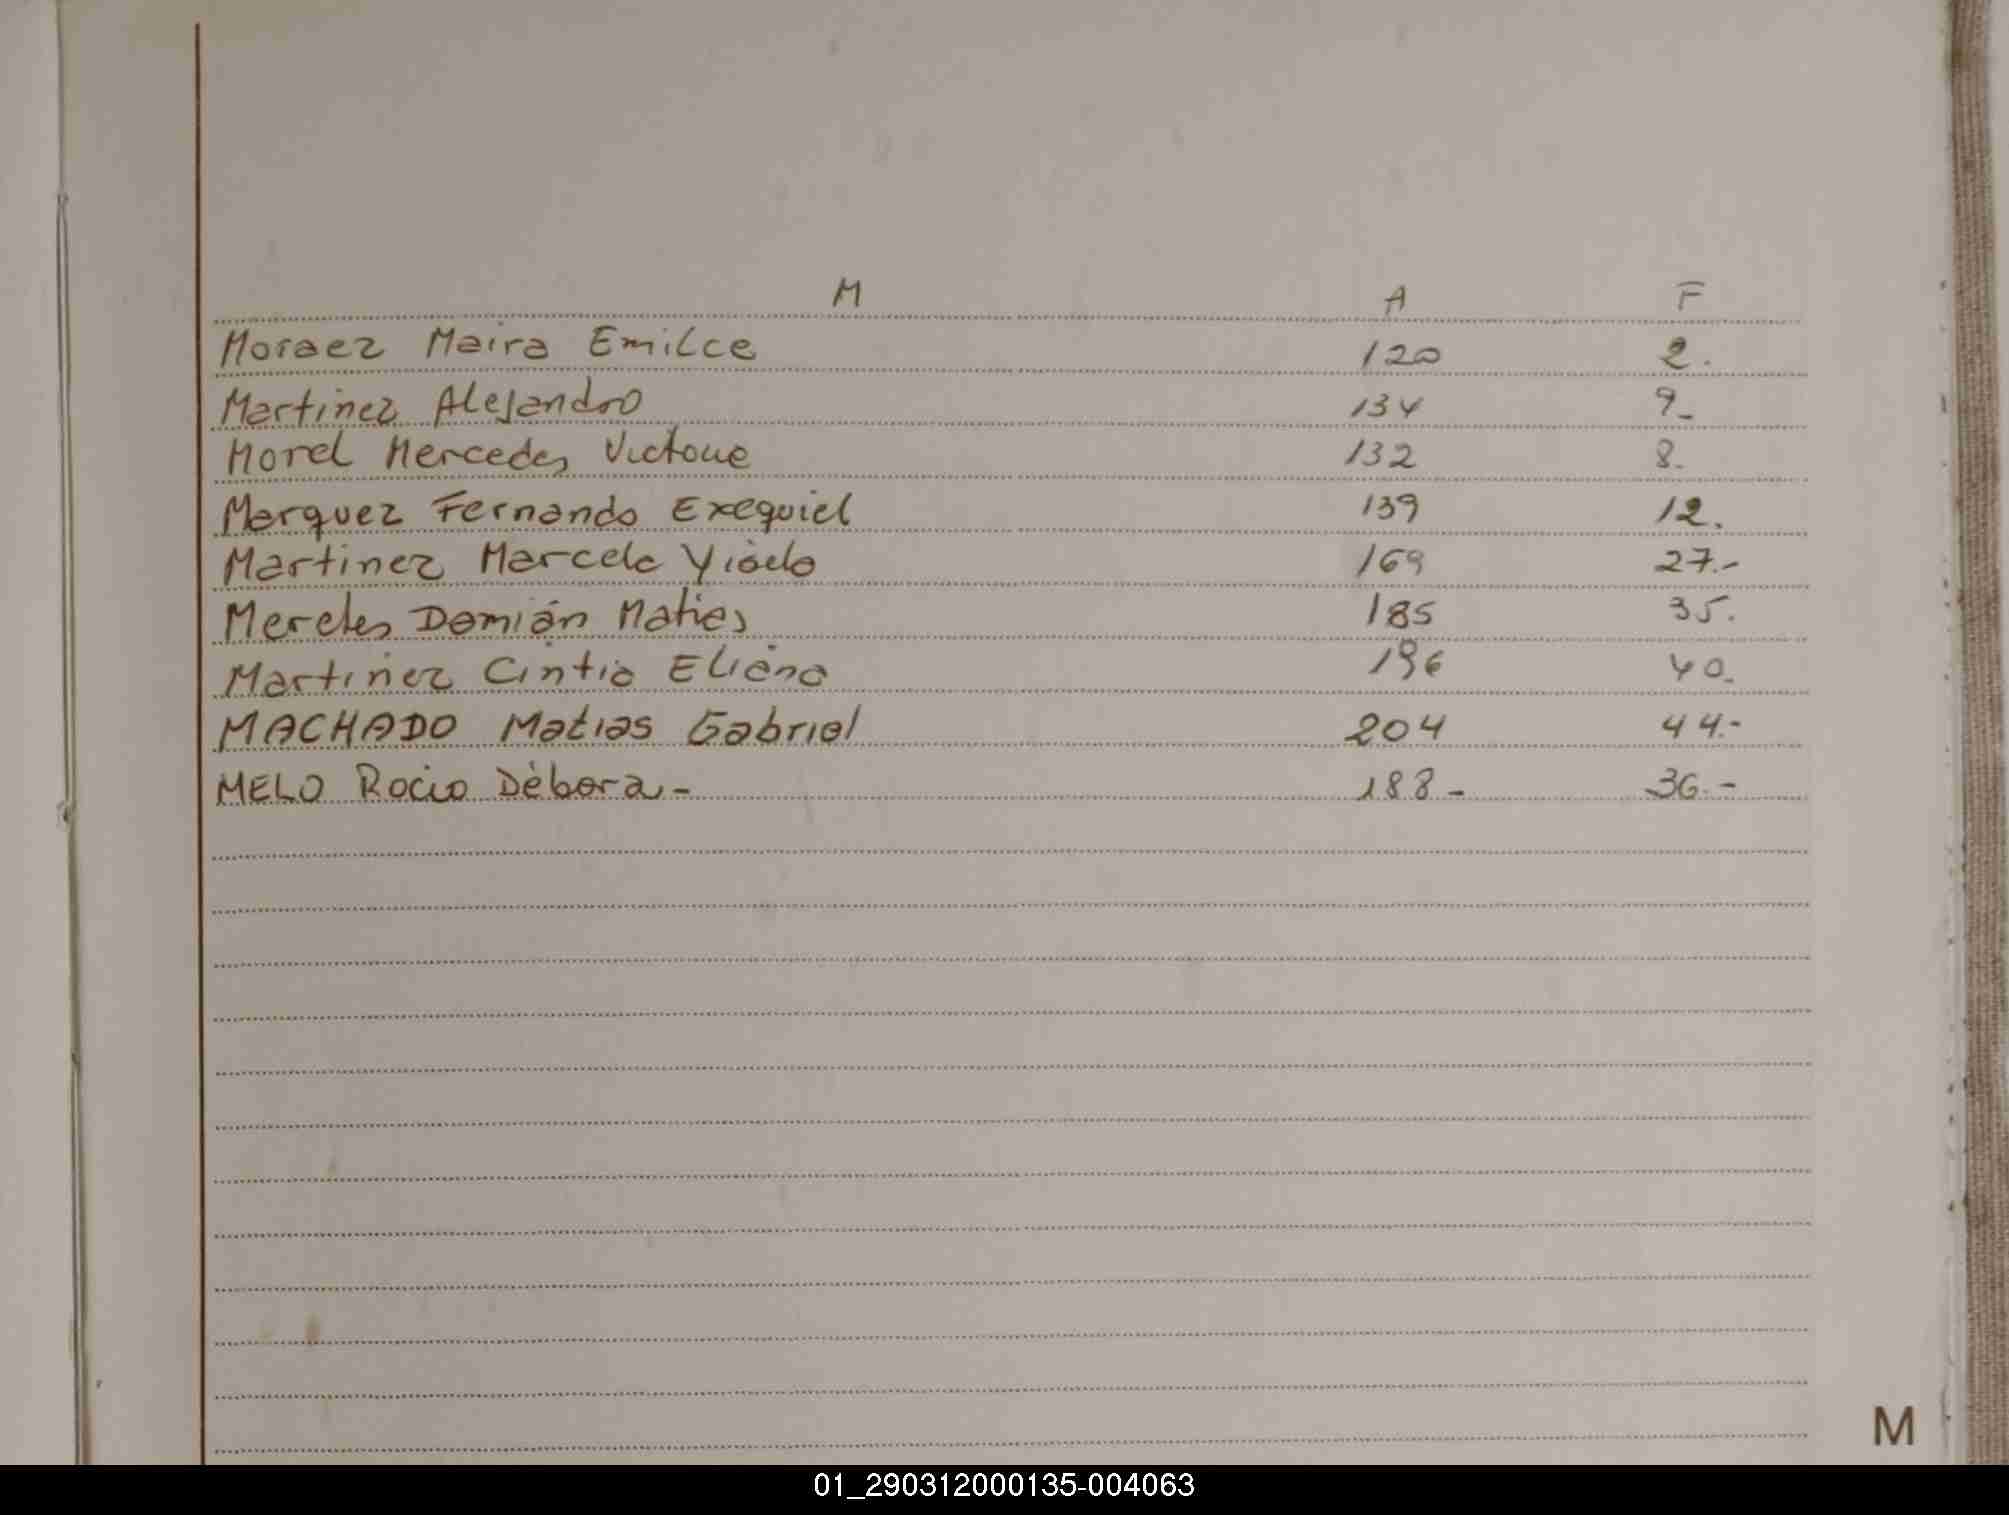 M A F
Moraez Maira Emilce 120 2.
Martinez Alejandro 134 9-
Morel Mercedes 132 8.
Marquez Fernando Exequiel 139 12.
Martinez Marcela 169 27.-
Mereles Damián Matias 185 35.
Martinez Cintia Eliana 196 40.
MACHADO Matias Gabriel 204 44.-
MELO Rocio Débora - 188 - 36.-
M
01_290312000135-004063